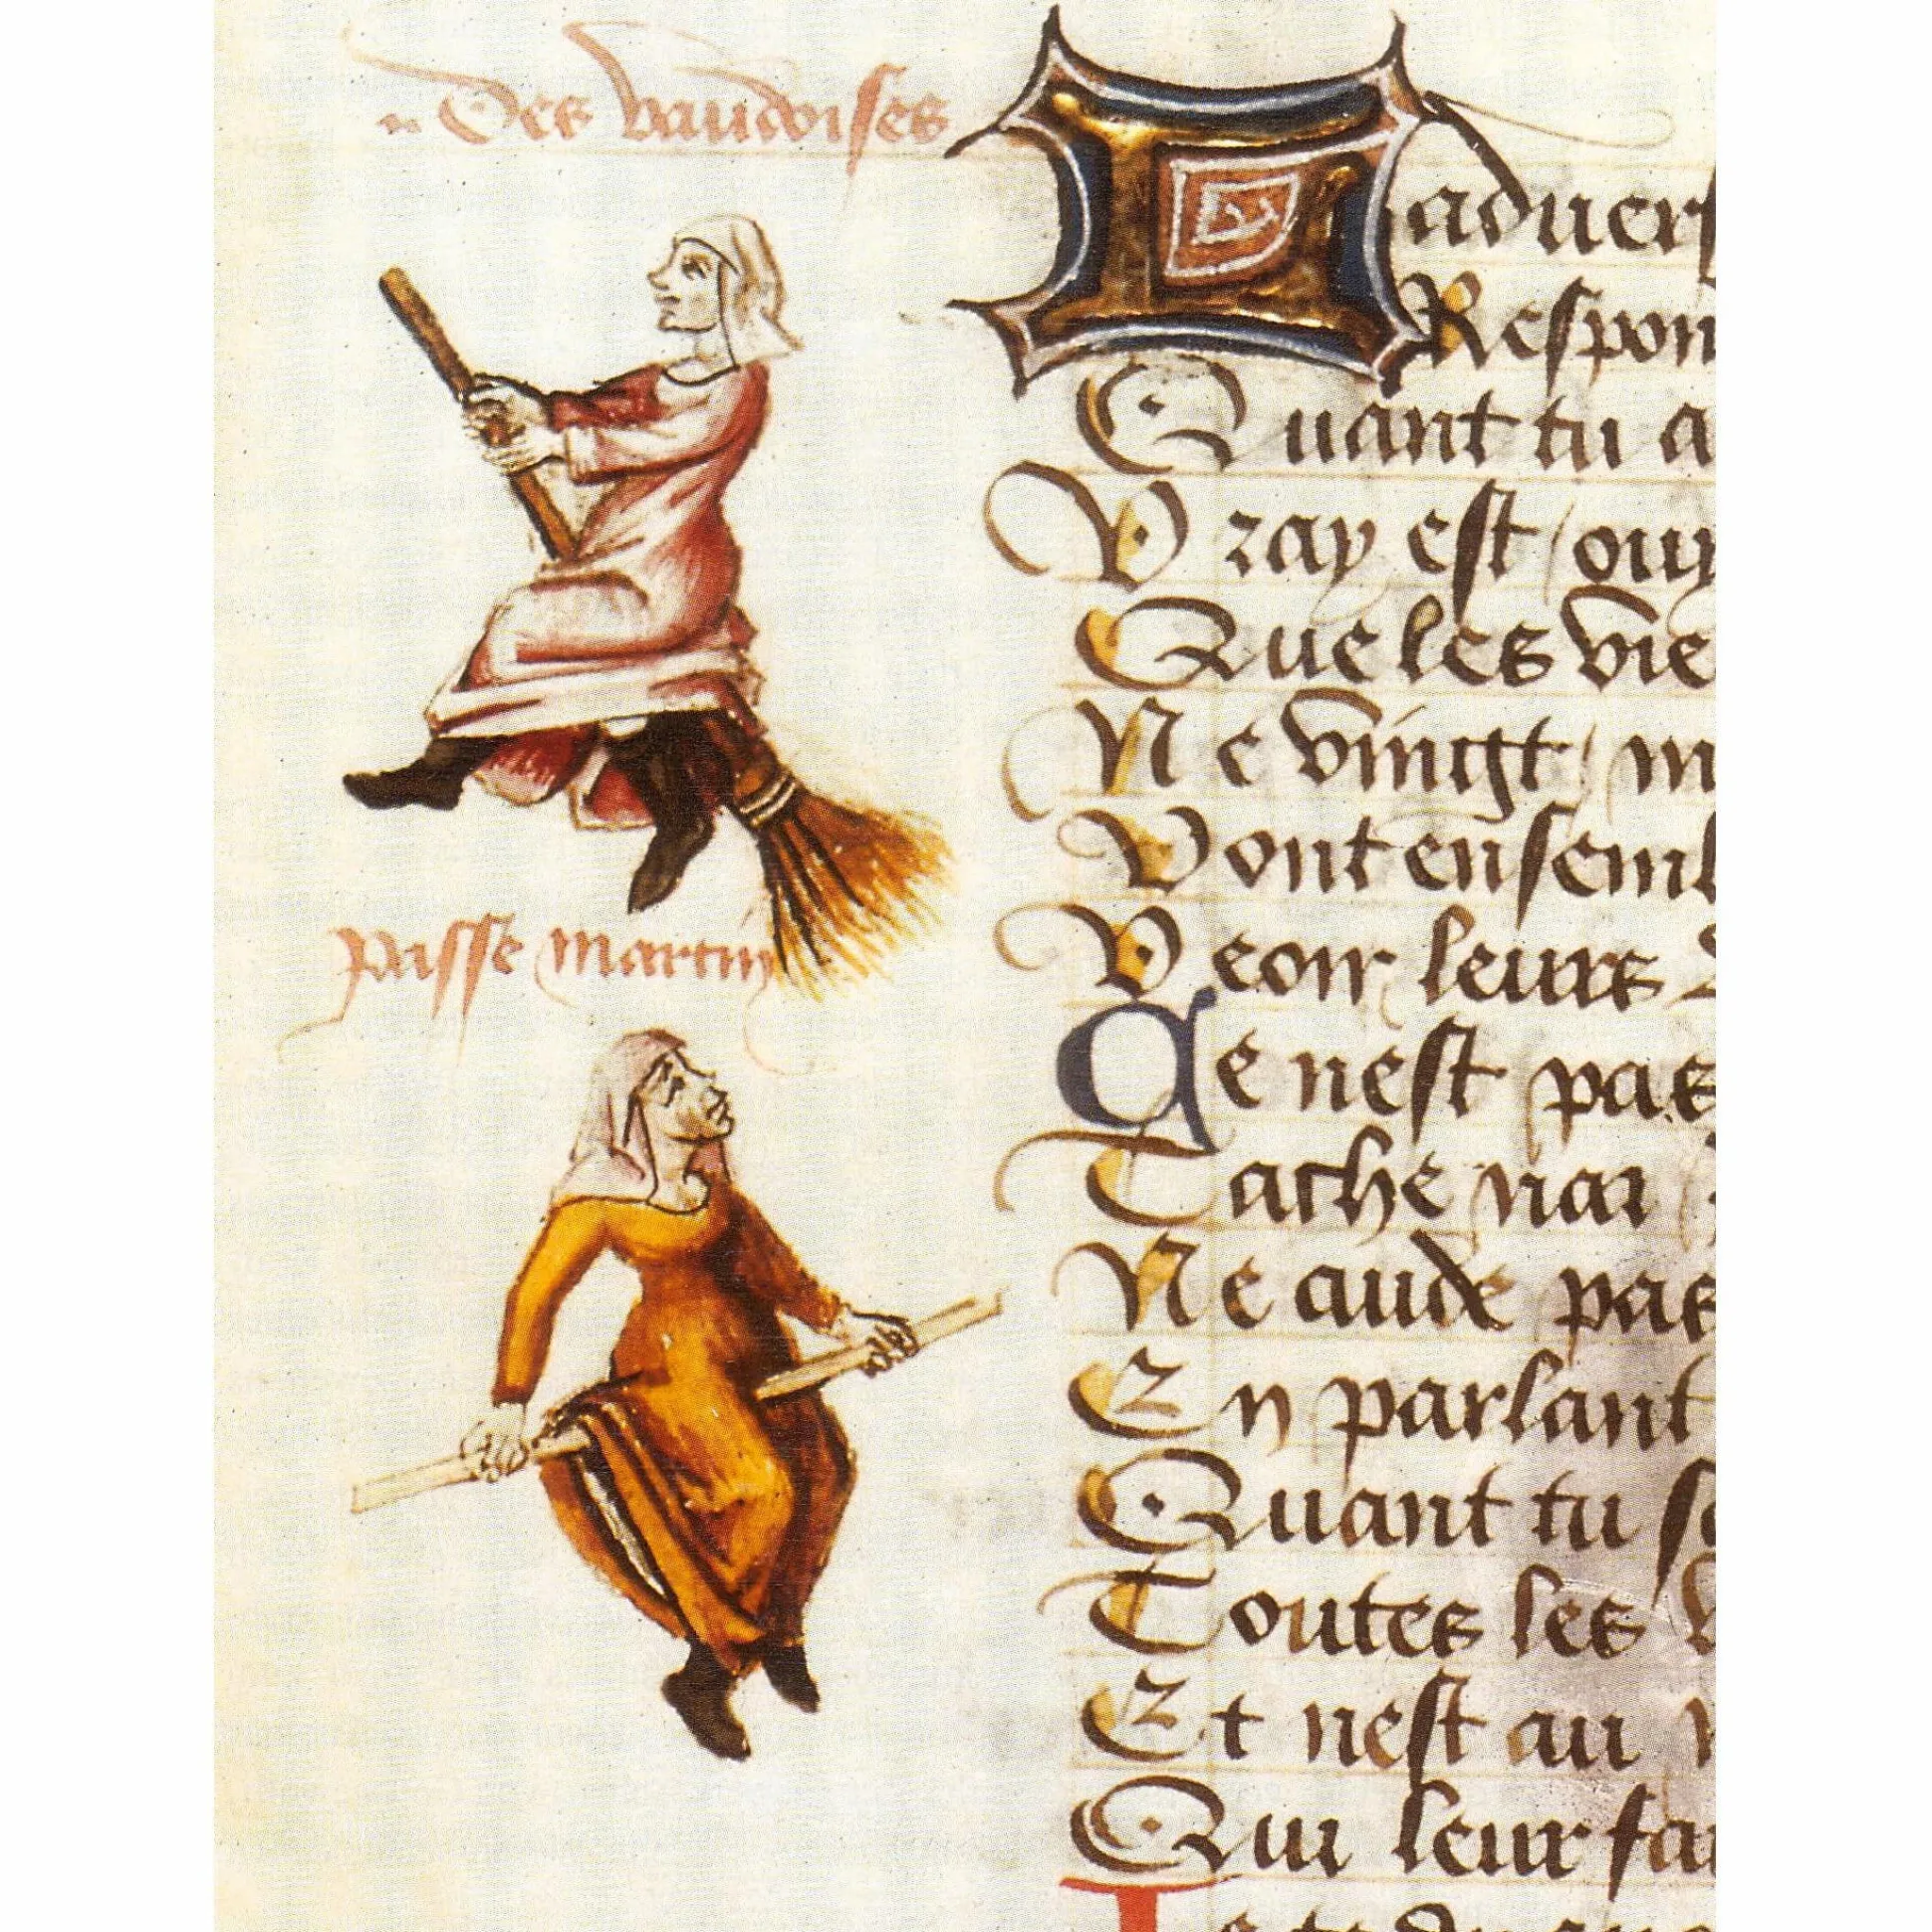 Des vaudoises
Passe martin
L aduers
Respon
Quant tu a
Vray est / ouy
Que les vie
Ne vingt / m
Vont ensembl
Veoir leurs
Ce nest pas
Tache nar
Ne aude pas
En parlant
Quant tu so
Toutes les v
Et nest au
Qui leur fai